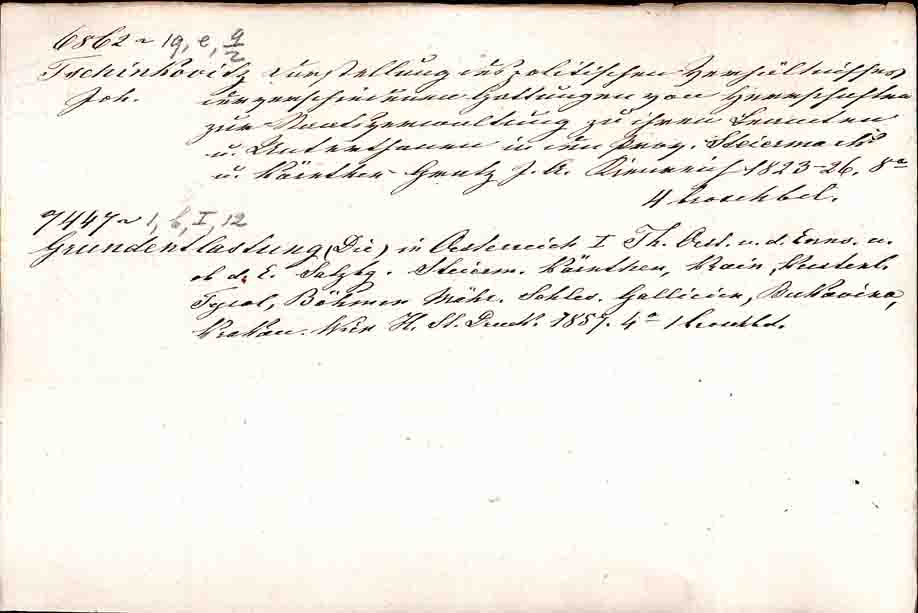 6862 ~ 19, e, 9/2
Tschinkovitz Darstellung des politischen Verhältnisses
Joh. der verschiedenen Gattungen von Herrschaften
zur Staatsverwaltung zu ihren Beamten
u. Unterthanen in den Prov. Steiermark
u. Kärnthen Gratz J. A. Kienreich 1823-26. 8°
4 broschbd.
7447 ~ 1, b, I, 12
Grundentlastung (Die) in Oesterreich I Th. Oest. u. d. Enns. u.
ob d. E. Salzbg. Steierm. Kärnthen, Krain, Küstenl.
Tyrol, Böhmen Mähr. Schles. Gallizien, Bukovina,
Krakau. Wien H. St. Druck. 1857. 4° 1 broschbd.